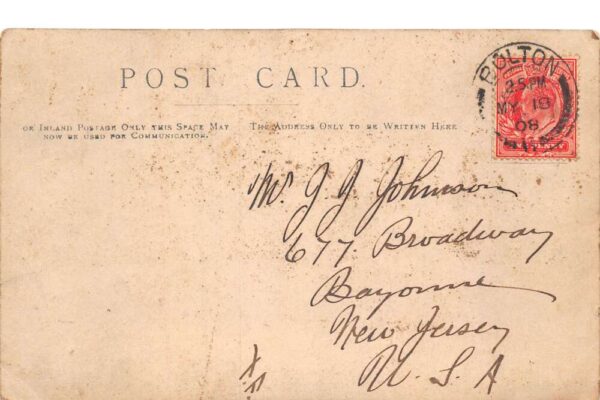 POST CARD.
OR INLAND POSTAGE ONLY THIS SPACE MAY
NOW BE USED FOR COMMUNICATION.
THE ADDRESS ONLY TO BE WRITTEN HERE
BOLTON
2.5 PM
MY 18
08
Mr J J Johnson
677 Broadway
Bayonne
New Jersey
U. S. A